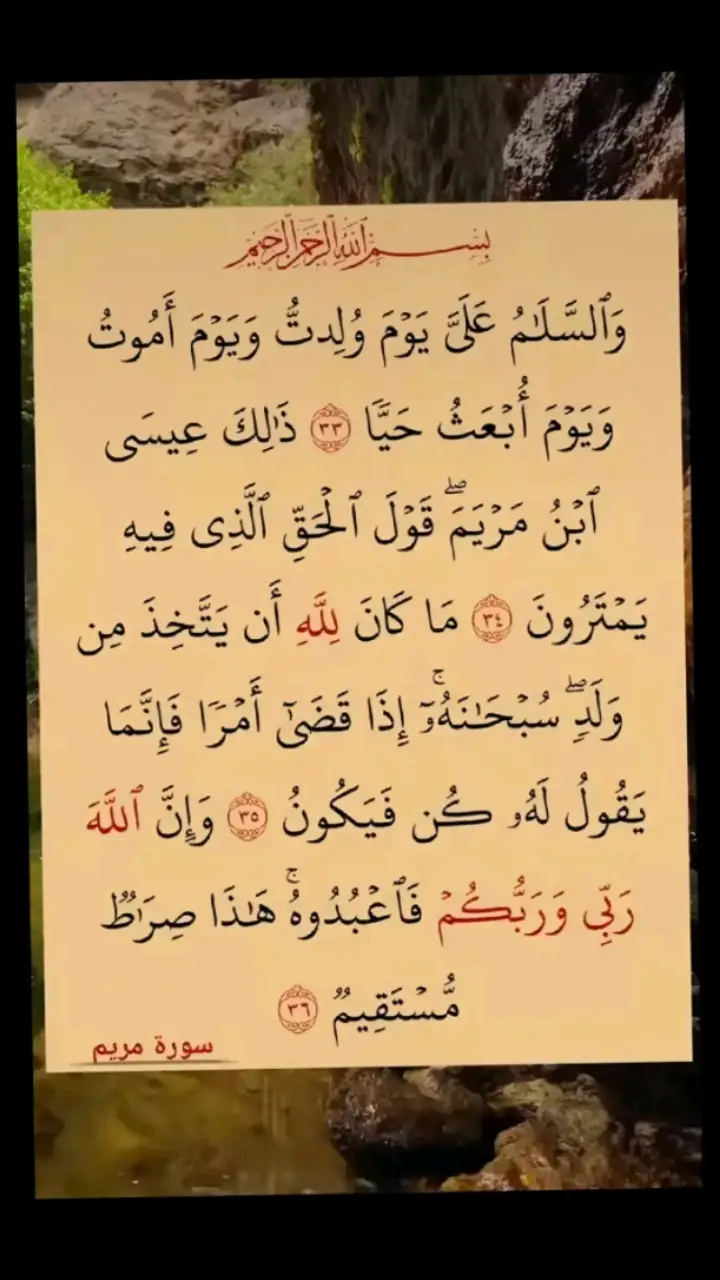 بِسْمِ ٱللَّهِ ٱلرَّحْمَٰنِ ٱلرَّحِيمِ
وَٱلسَّلَٰمُ عَلَىَّ يَوْمَ وُلِدتُّ وَيَوْمَ أَمُوتُ
وَيَوْمَ أُبْعَثُ حَيًّا ٣٣ ذَٰلِكَ عِيسَى
ٱبْنُ مَرْيَمَ ۖ قَوْلَ ٱلْحَقِّ ٱلَّذِى فِيهِ
يَمْتَرُونَ ٣٤ مَا كَانَ لِلَّهِ أَن يَتَّخِذَ مِن
وَلَدٍ ۖ سُبْحَٰنَهُۥٓ ۚ إِذَا قَضَىٰٓ أَمْرًا فَإِنَّمَا
يَقُولُ لَهُۥ كُن فَيَكُونُ ٣٥ وَإِنَّ ٱللَّهَ
رَبِّى وَرَبُّكُمْ فَٱعْبُدُوهُ ۚ هَٰذَا صِرَٰطٌ
مُّسْتَقِيمٌ ٣٦
سورة مريم